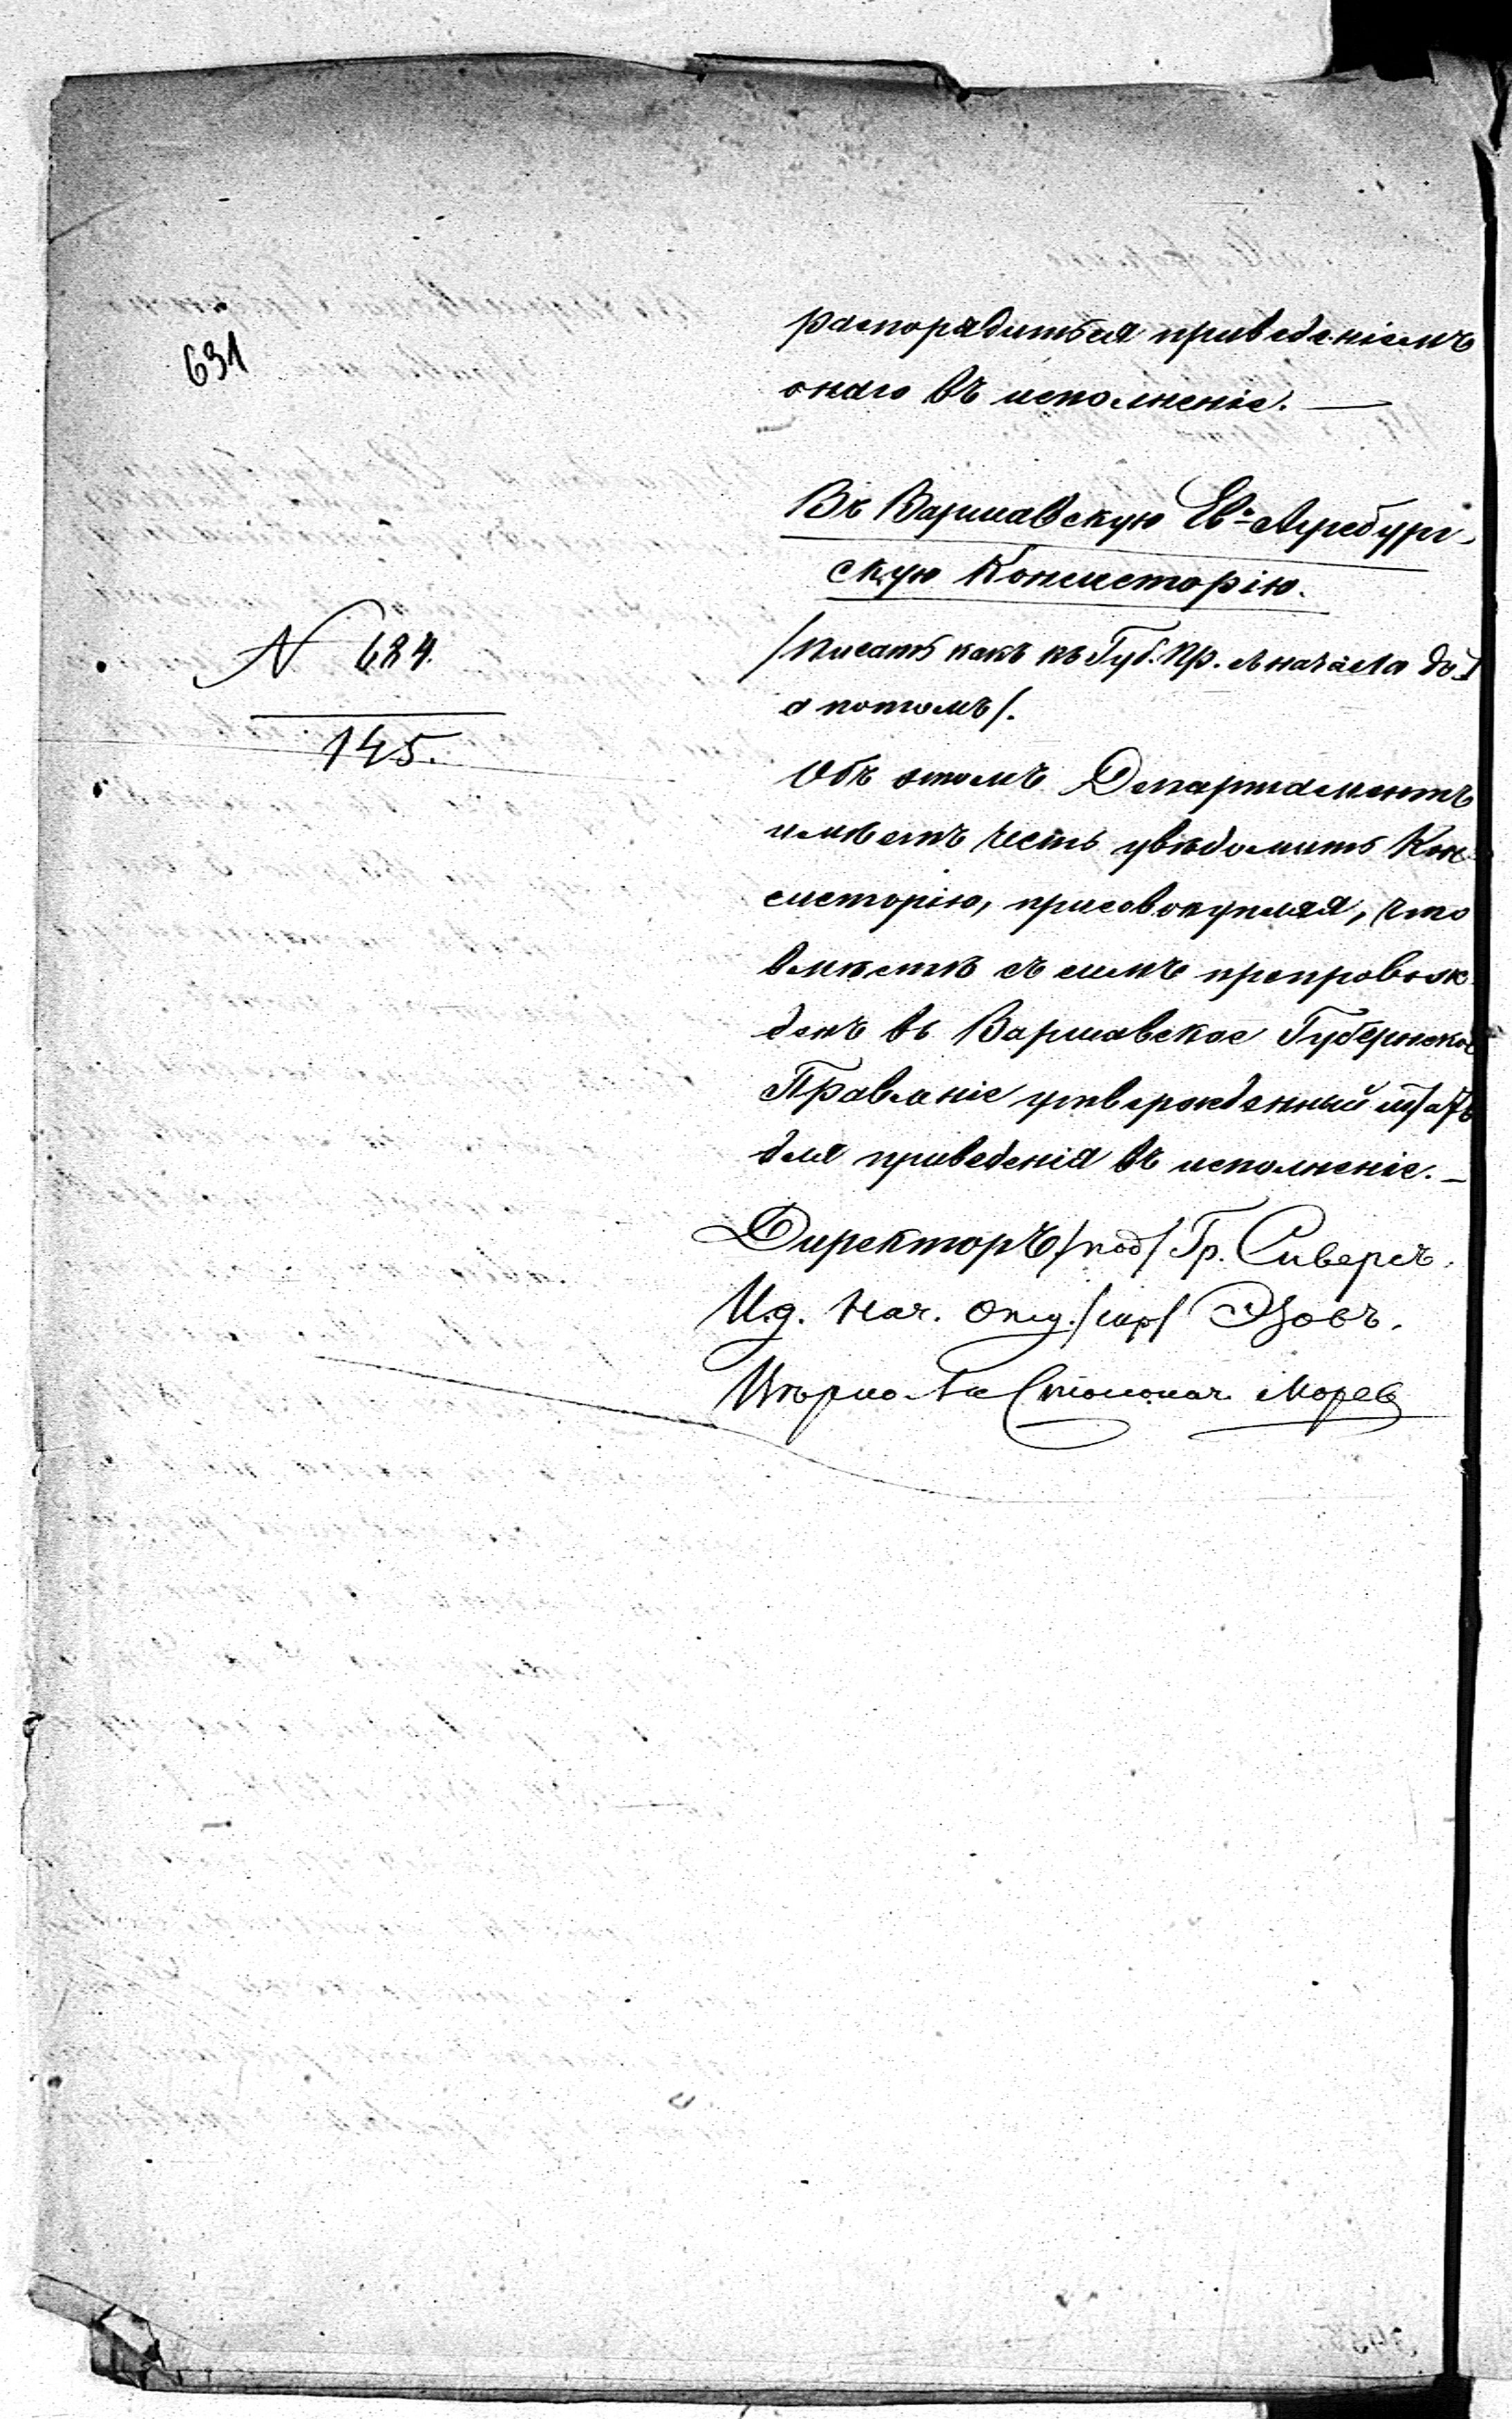 631
распорядиться приведеніемъ
онаго въ исполненіе. —
Въ Варшавскую Ев.-Аугсбург-
скую Консисторію.
№ 684.
145.
/Писать какъ къ Губ. Пр. съ начала до
а потомъ/.
Объ этомъ Департаментъ
имѣетъ честь увѣдомить Кон-
систорію, присовокупляя, что
вмѣстѣ съ симъ препровож-
денъ въ Варшавское Губернское
Правленіе утвержденный штатъ
для приведенія въ исполненіе. —
Директоръ /под/ Гр. Сиверсъ.
И.д. Нач. Отд. /скр/
Вѣрно: Столонач.